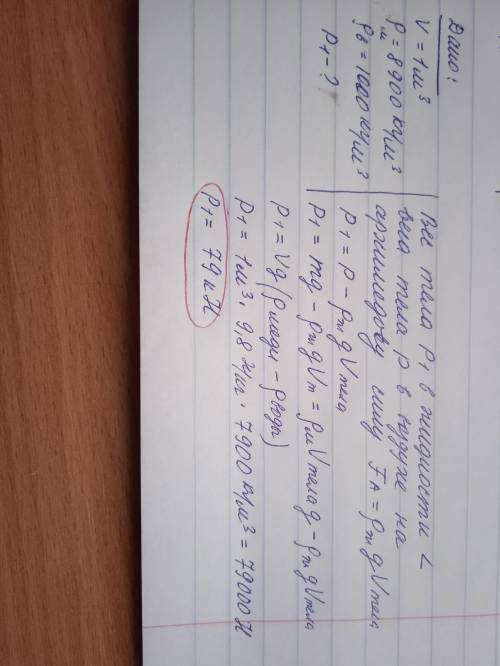 Дано:
V = 1 м³
ρм = 8900 кг/м³
ρв = 1000 кг/м³
P₁ - ?
Вес тела P₁ в жидкости <
веса тела P в воздухе на
архимедову силу F_A = ρж g Vтела
P₁ = P - ρж g Vтела
P₁ = mg - ρж g Vт = ρм Vтела g - ρж g Vтела
P₁ = Vg (ρмеди - ρводы)
P₁ = 1м³ · 9,8 Н/кг · 7900 кг/м³ = 79000 Н
P₁ = 79 кН